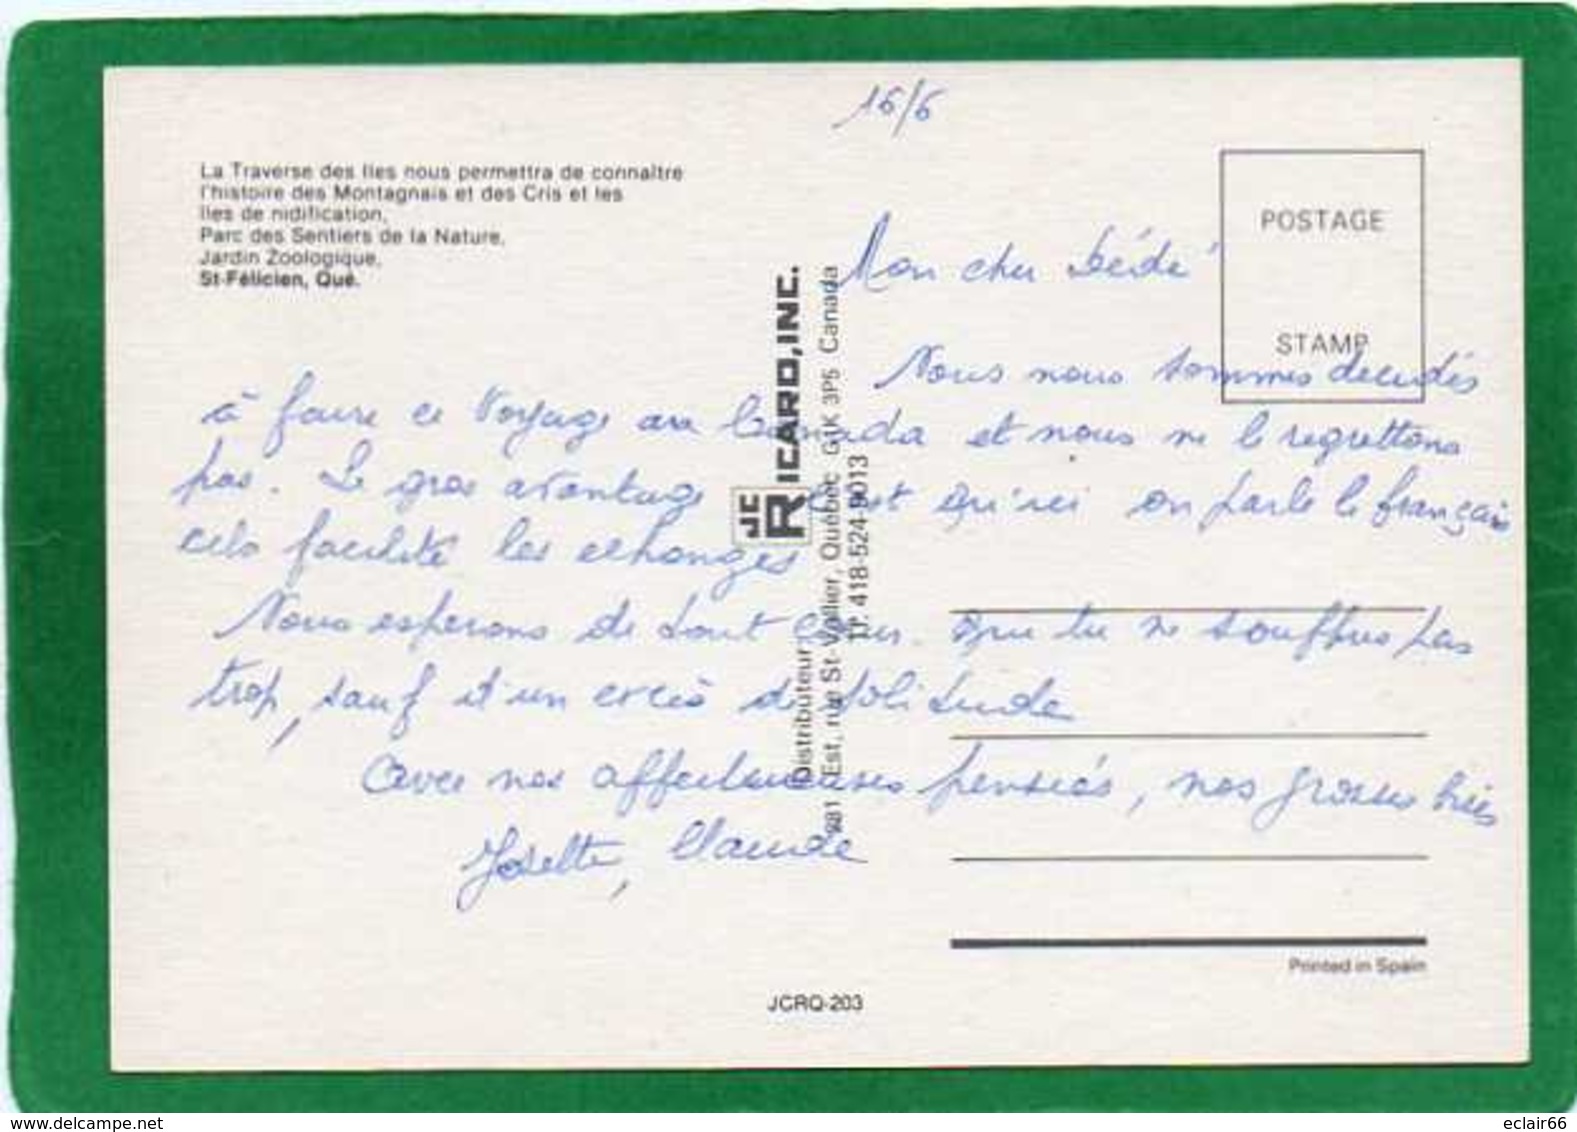 16/6
La Traverse des Iles nous permettra de connaître
l'histoire des Montagnais et des Cris et les
îles de nidification,
Parc des Sentiers de la Nature,
Jardin Zoologique,
St-Félicien, Qué.
POSTAGE
STAMP
Mon cher Dédé
Nous nous sommes decidés
à faire ce voyage au Canada et nous ne le regrettons
pas. Le gros avantage c'est qu'ici on parle le français
cela facilite les echanges
Nous esperons de tout cœur que tu ne souffres pas
trop, sauf d'un excès de solitude
Avec nos affectueuses pensées, nos grosses bises
Josette, Claude
JC RICARD, INC.
Distributeur
981 Est, rue St-Vallier, Québec G1K 3P5 Canada
Tf. 418-524-9013
Printed in Spain
JCRQ-203
www.delcampe.net
eclair66